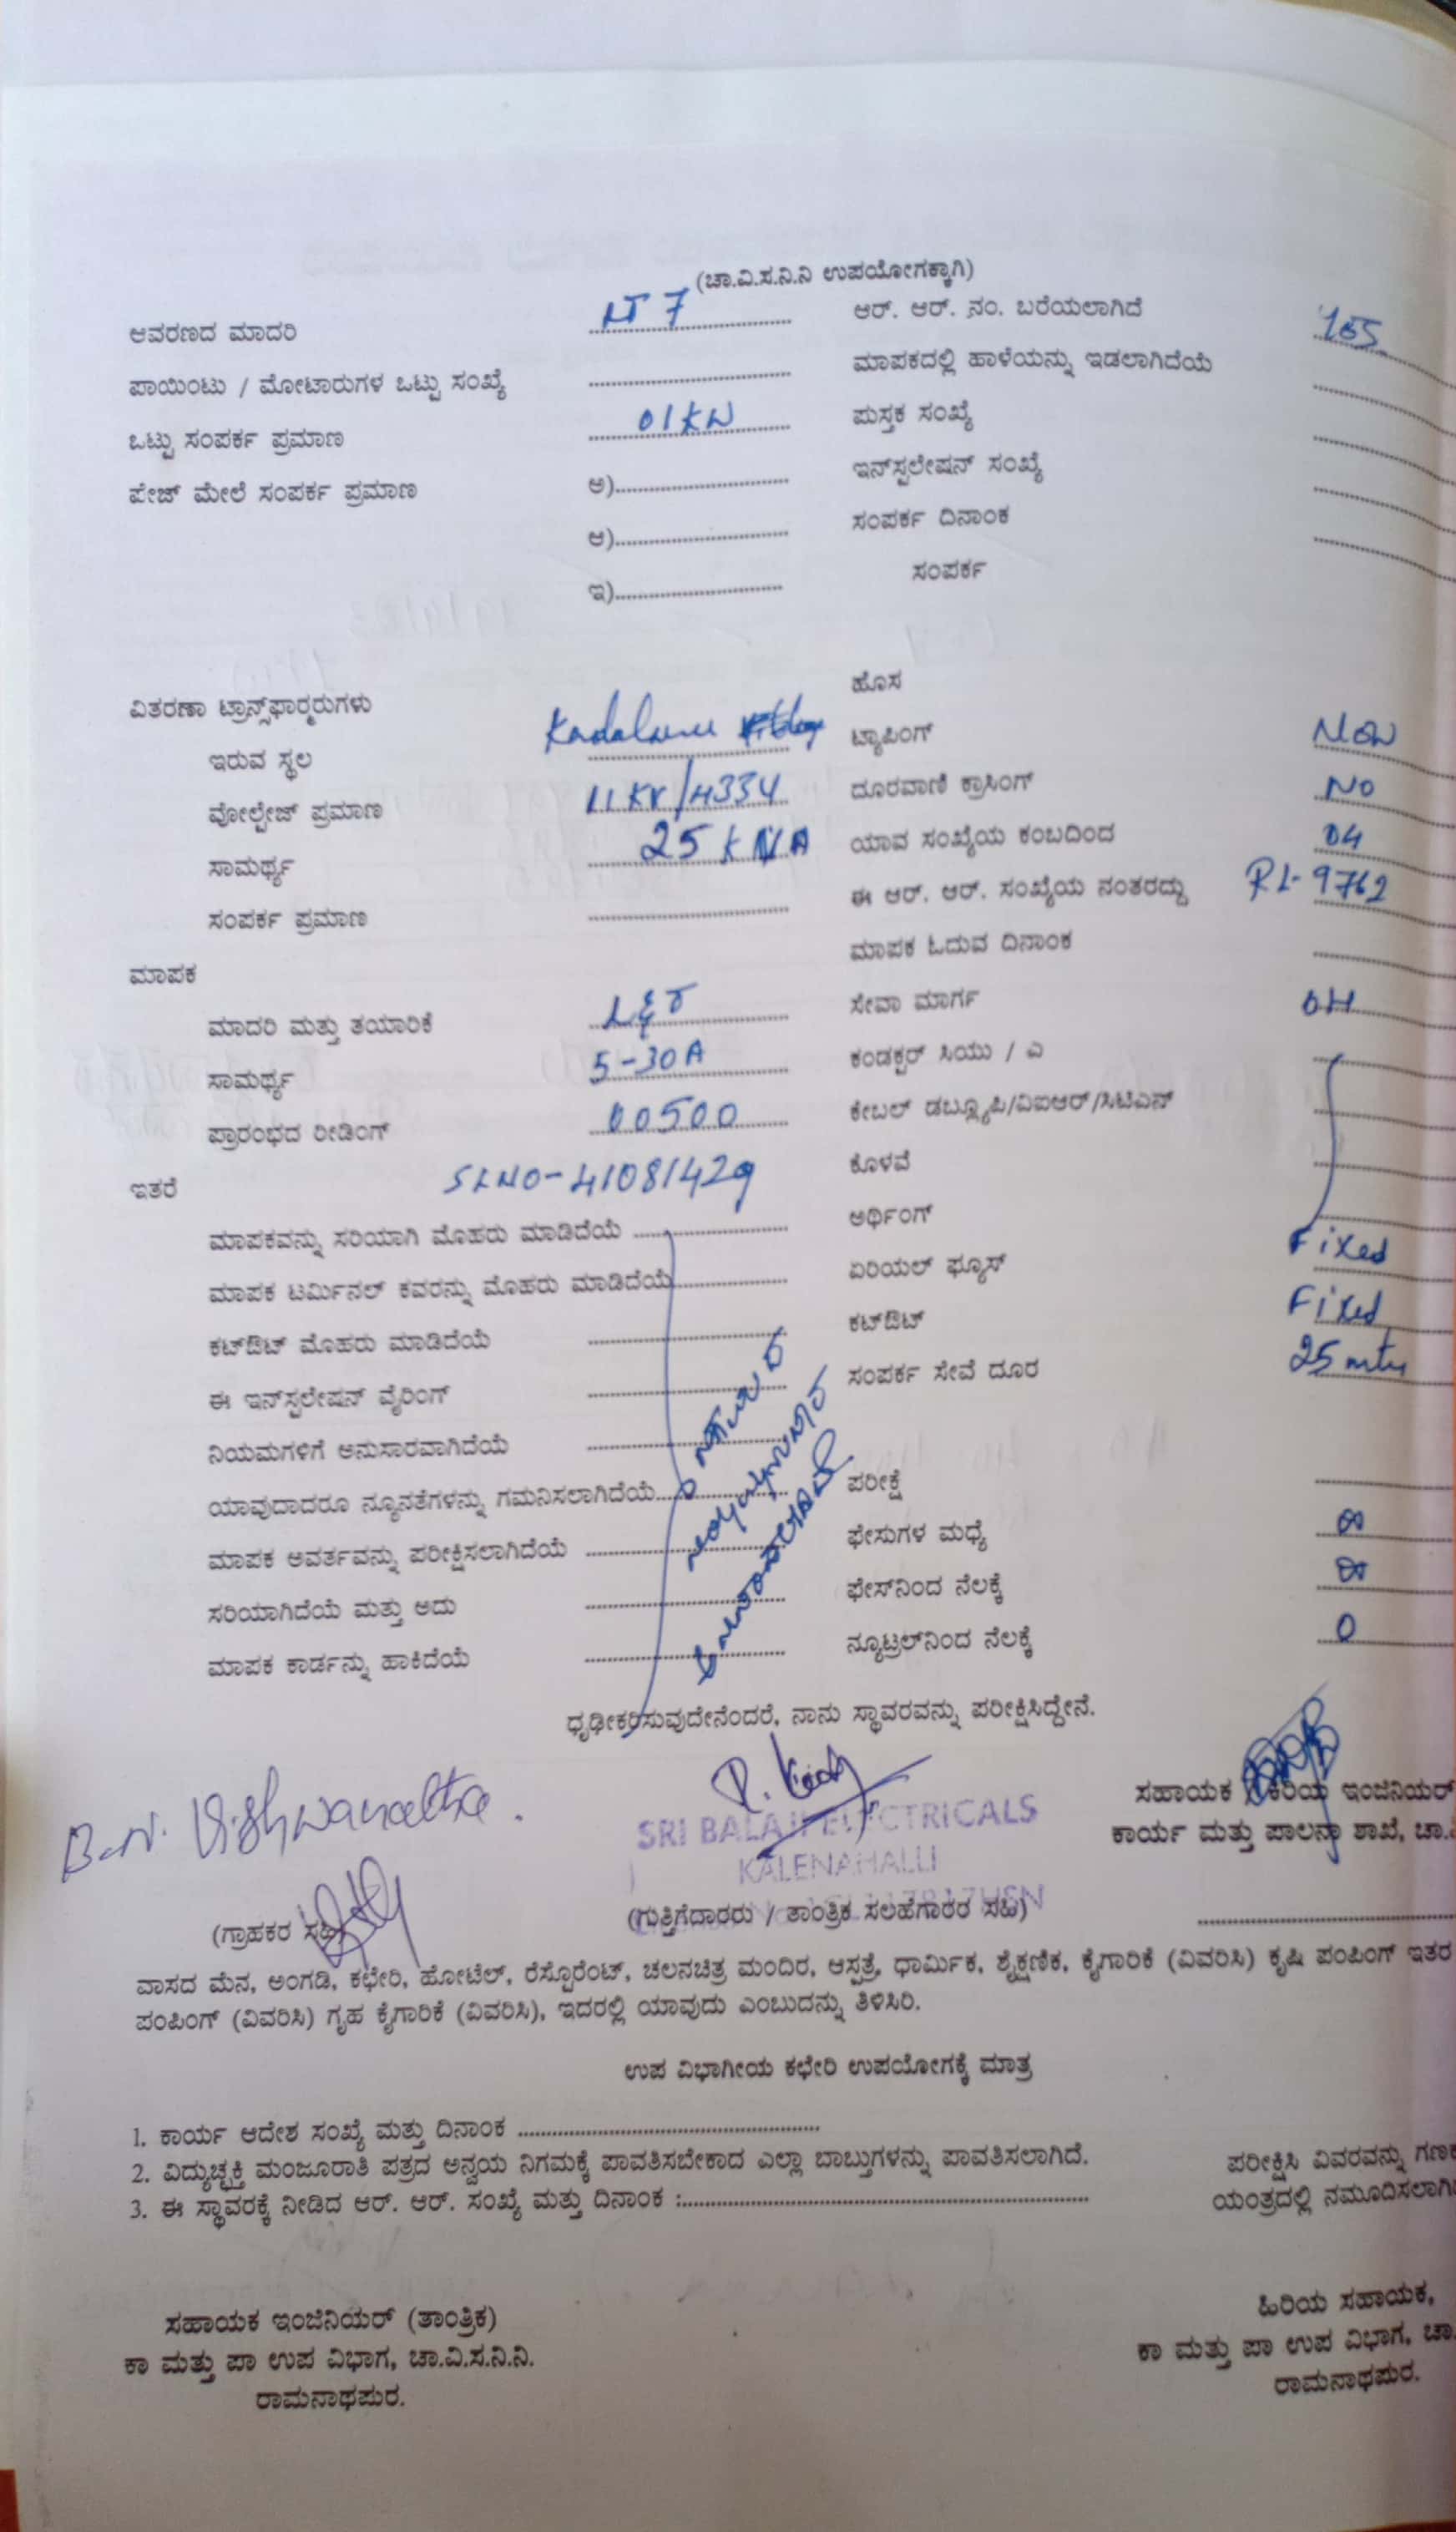 (ಚಾ.ವಿ.ಸ.ನಿ.ನಿ ಉಪಯೋಗಕ್ಕಾಗಿ)
ಆವರಣದ ಮಾದರಿ LT 7
ಪಾಯಿಂಟು / ಮೋಟಾರುಗಳ ಒಟ್ಟು ಸಂಖ್ಯೆ
ಒಟ್ಟು ಸಂಪರ್ಕ ಪ್ರಮಾಣ 01KW
ಪೇಜ್ ಮೇಲೆ ಸಂಪರ್ಕ ಪ್ರಮಾಣ ಅ)
ಆ)
ಇ)
ಆರ್. ಆರ್. ನಂ. ಬರೆಯಲಾಗಿದೆ
ಮಾಪಕದಲ್ಲಿ ಹಾಳೆಯನ್ನು ಇಡಲಾಗಿದೆಯೆ
ಪುಸ್ತಕ ಸಂಖ್ಯೆ
ಇನ್‌ಸ್ಟಲೇಷನ್ ಸಂಖ್ಯೆ
ಸಂಪರ್ಕ ದಿನಾಂಕ
ಸಂಪರ್ಕ
ವಿತರಣಾ ಟ್ರಾನ್ಸ್‌ಫಾರ್‍ಮರುಗಳು
ಇರುವ ಸ್ಥಲ
ವೋಲ್ಟೇಜ್ ಪ್ರಮಾಣ 11KV/433V
ಸಾಮರ್ಥ್ಯ 25KVA
ಸಂಪರ್ಕ ಪ್ರಮಾಣ
ಮಾಪಕ
ಮಾದರಿ ಮತ್ತು ತಯಾರಿಕೆ L&T
ಸಾಮರ್ಥ್ಯ 5-30A
ಪ್ರಾರಂಭದ ರೀಡಿಂಗ್ 00500
ಇತರೆ SLNO-41081429
ಮಾಪಕವನ್ನು ಸರಿಯಾಗಿ ಮೊಹರು ಮಾಡಿದೆಯೆ
ಮಾಪಕ ಟರ್ಮಿನಲ್ ಕವರನ್ನು ಮೊಹರು ಮಾಡಿದೆಯೆ
ಕಟ್‌ಔಟ್ ಮೊಹರು ಮಾಡಿದೆಯೆ
ಈ ಇನ್‌ಸ್ಟಲೇಷನ್ ವೈರಿಂಗ್
ನಿಯಮಗಳಿಗೆ ಅನುಸಾರವಾಗಿದೆಯೆ
ಯಾವುದಾದರೂ ನ್ಯೂನತೆಗಳನ್ನು ಗಮನಿಸಲಾಗಿದೆಯೆ
ಮಾಪಕ ಅವರ್ತವನ್ನು ಪರೀಕ್ಷಿಸಲಾಗಿದೆಯೆ
ಸರಿಯಾಗಿದೆಯೆ ಮತ್ತು ಅದು
ಮಾಪಕ ಕಾರ್ಡನ್ನು ಹಾಕಿದೆಯೆ
ಹೊಸ
ಟ್ಯಾಪಿಂಗ್ New
ದೂರವಾಣಿ ಕ್ರಾಸಿಂಗ್ No
ಯಾವ ಸಂಖ್ಯೆಯ ಕಂಬದಿಂದ 04
ಈ ಆರ್. ಆರ್. ಸಂಖ್ಯೆಯ ನಂತರದ್ದು RL-9762
ಮಾಪಕ ಓದುವ ದಿನಾಂಕ
ಸೇವಾ ಮಾರ್ಗ OH
ಕಂಡಕ್ಟರ್ ಸಿಯು / ಎ
ಕೇಬಲ್ ಡಬ್ಲ್ಯೂಪಿ/ವಿಐಆರ್/ಸಿಟಿಎಸ್
ಕೊಳವೆ
ಅರ್ಥಿಂಗ್
ಏರಿಯಲ್ ಫ್ಯೂಸ್ Fixed
ಕಟ್‌ಔಟ್ Fixed
ಸಂಪರ್ಕ ಸೇವೆ ದೂರ 25 mtr
ಪರೀಕ್ಷೆ
ಫೇಸುಗಳ ಮಧ್ಯೆ ∞
ಫೇಸ್‌ನಿಂದ ನೆಲಕ್ಕೆ ∞
ನ್ಯೂಟ್ರಲ್‌ನಿಂದ ನೆಲಕ್ಕೆ 0
ಧೃಢೀಕರಿಸುವುದೇನೆಂದರೆ, ನಾನು ಸ್ಥಾವರವನ್ನು ಪರೀಕ್ಷಿಸಿದ್ದೇನೆ.
B.N. Vishwanatha.
SRI BALAJI ELECTRICALS
KALENAHALLI
(ಗ್ರಾಹಕರ ಸಹಿ)
(ಗುತ್ತಿಗೆದಾರರು / ತಾಂತ್ರಿಕ ಸಲಹೆಗಾರರ ಸಹಿ)
ಸಹಾಯಕ / ಕಿರಿಯ ಇಂಜಿನಿಯರ್
ಕಾರ್ಯ ಮತ್ತು ಪಾಲನಾ ಶಾಖೆ, ಚಾ.
ವಾಸದ ಮೆನ, ಅಂಗಡಿ, ಕಛೇರಿ, ಹೋಟೆಲ್, ರೆಸ್ಟೊರೆಂಟ್, ಚಲನಚಿತ್ರ ಮಂದಿರ, ಆಸ್ಪತ್ರೆ, ಧಾರ್ಮಿಕ, ಶೈಕ್ಷಣಿಕ, ಕೈಗಾರಿಕೆ (ವಿವರಿಸಿ) ಕೃಷಿ ಪಂಪಿಂಗ್ ಇತರ
ಪಂಪಿಂಗ್ (ವಿವರಿಸಿ) ಗೃಹ ಕೈಗಾರಿಕೆ (ವಿವರಿಸಿ), ಇದರಲ್ಲಿ ಯಾವುದು ಎಂಬುದನ್ನು ತಿಳಿಸಿರಿ.
ಉಪ ವಿಭಾಗೀಯ ಕಛೇರಿ ಉಪಯೋಗಕ್ಕೆ ಮಾತ್ರ
1. ಕಾರ್ಯ ಆದೇಶ ಸಂಖ್ಯೆ ಮತ್ತು ದಿನಾಂಕ
2. ವಿದ್ಯುಚ್ಛಕ್ತಿ ಮಂಜೂರಾತಿ ಪತ್ರದ ಅನ್ವಯ ನಿಗಮಕ್ಕೆ ಪಾವತಿಸಬೇಕಾದ ಎಲ್ಲಾ ಬಾಬ್ತುಗಳನ್ನು ಪಾವತಿಸಲಾಗಿದೆ.
3. ಈ ಸ್ಥಾವರಕ್ಕೆ ನೀಡಿದ ಆರ್. ಆರ್. ಸಂಖ್ಯೆ ಮತ್ತು ದಿನಾಂಕ :
ಪರೀಕ್ಷಿಸಿ ವಿವರವನ್ನು ಗಣಕ
ಯಂತ್ರದಲ್ಲಿ ನಮೂದಿಸಲಾಗಿ
ಸಹಾಯಕ ಇಂಜಿನಿಯರ್ (ತಾಂತ್ರಿಕ)
ಕಾ ಮತ್ತು ಪಾ ಉಪ ವಿಭಾಗ, ಚಾ.ವಿ.ಸ.ನಿ.ನಿ.
ರಾಮನಾಥಪುರ.
ಹಿರಿಯ ಸಹಾಯಕ,
ಕಾ ಮತ್ತು ಪಾ ಉಪ ವಿಭಾಗ, ಚಾ.
ರಾಮನಾಥಪುರ.